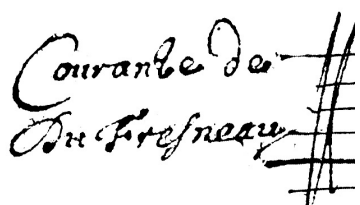 Courante de
Du Fresneau